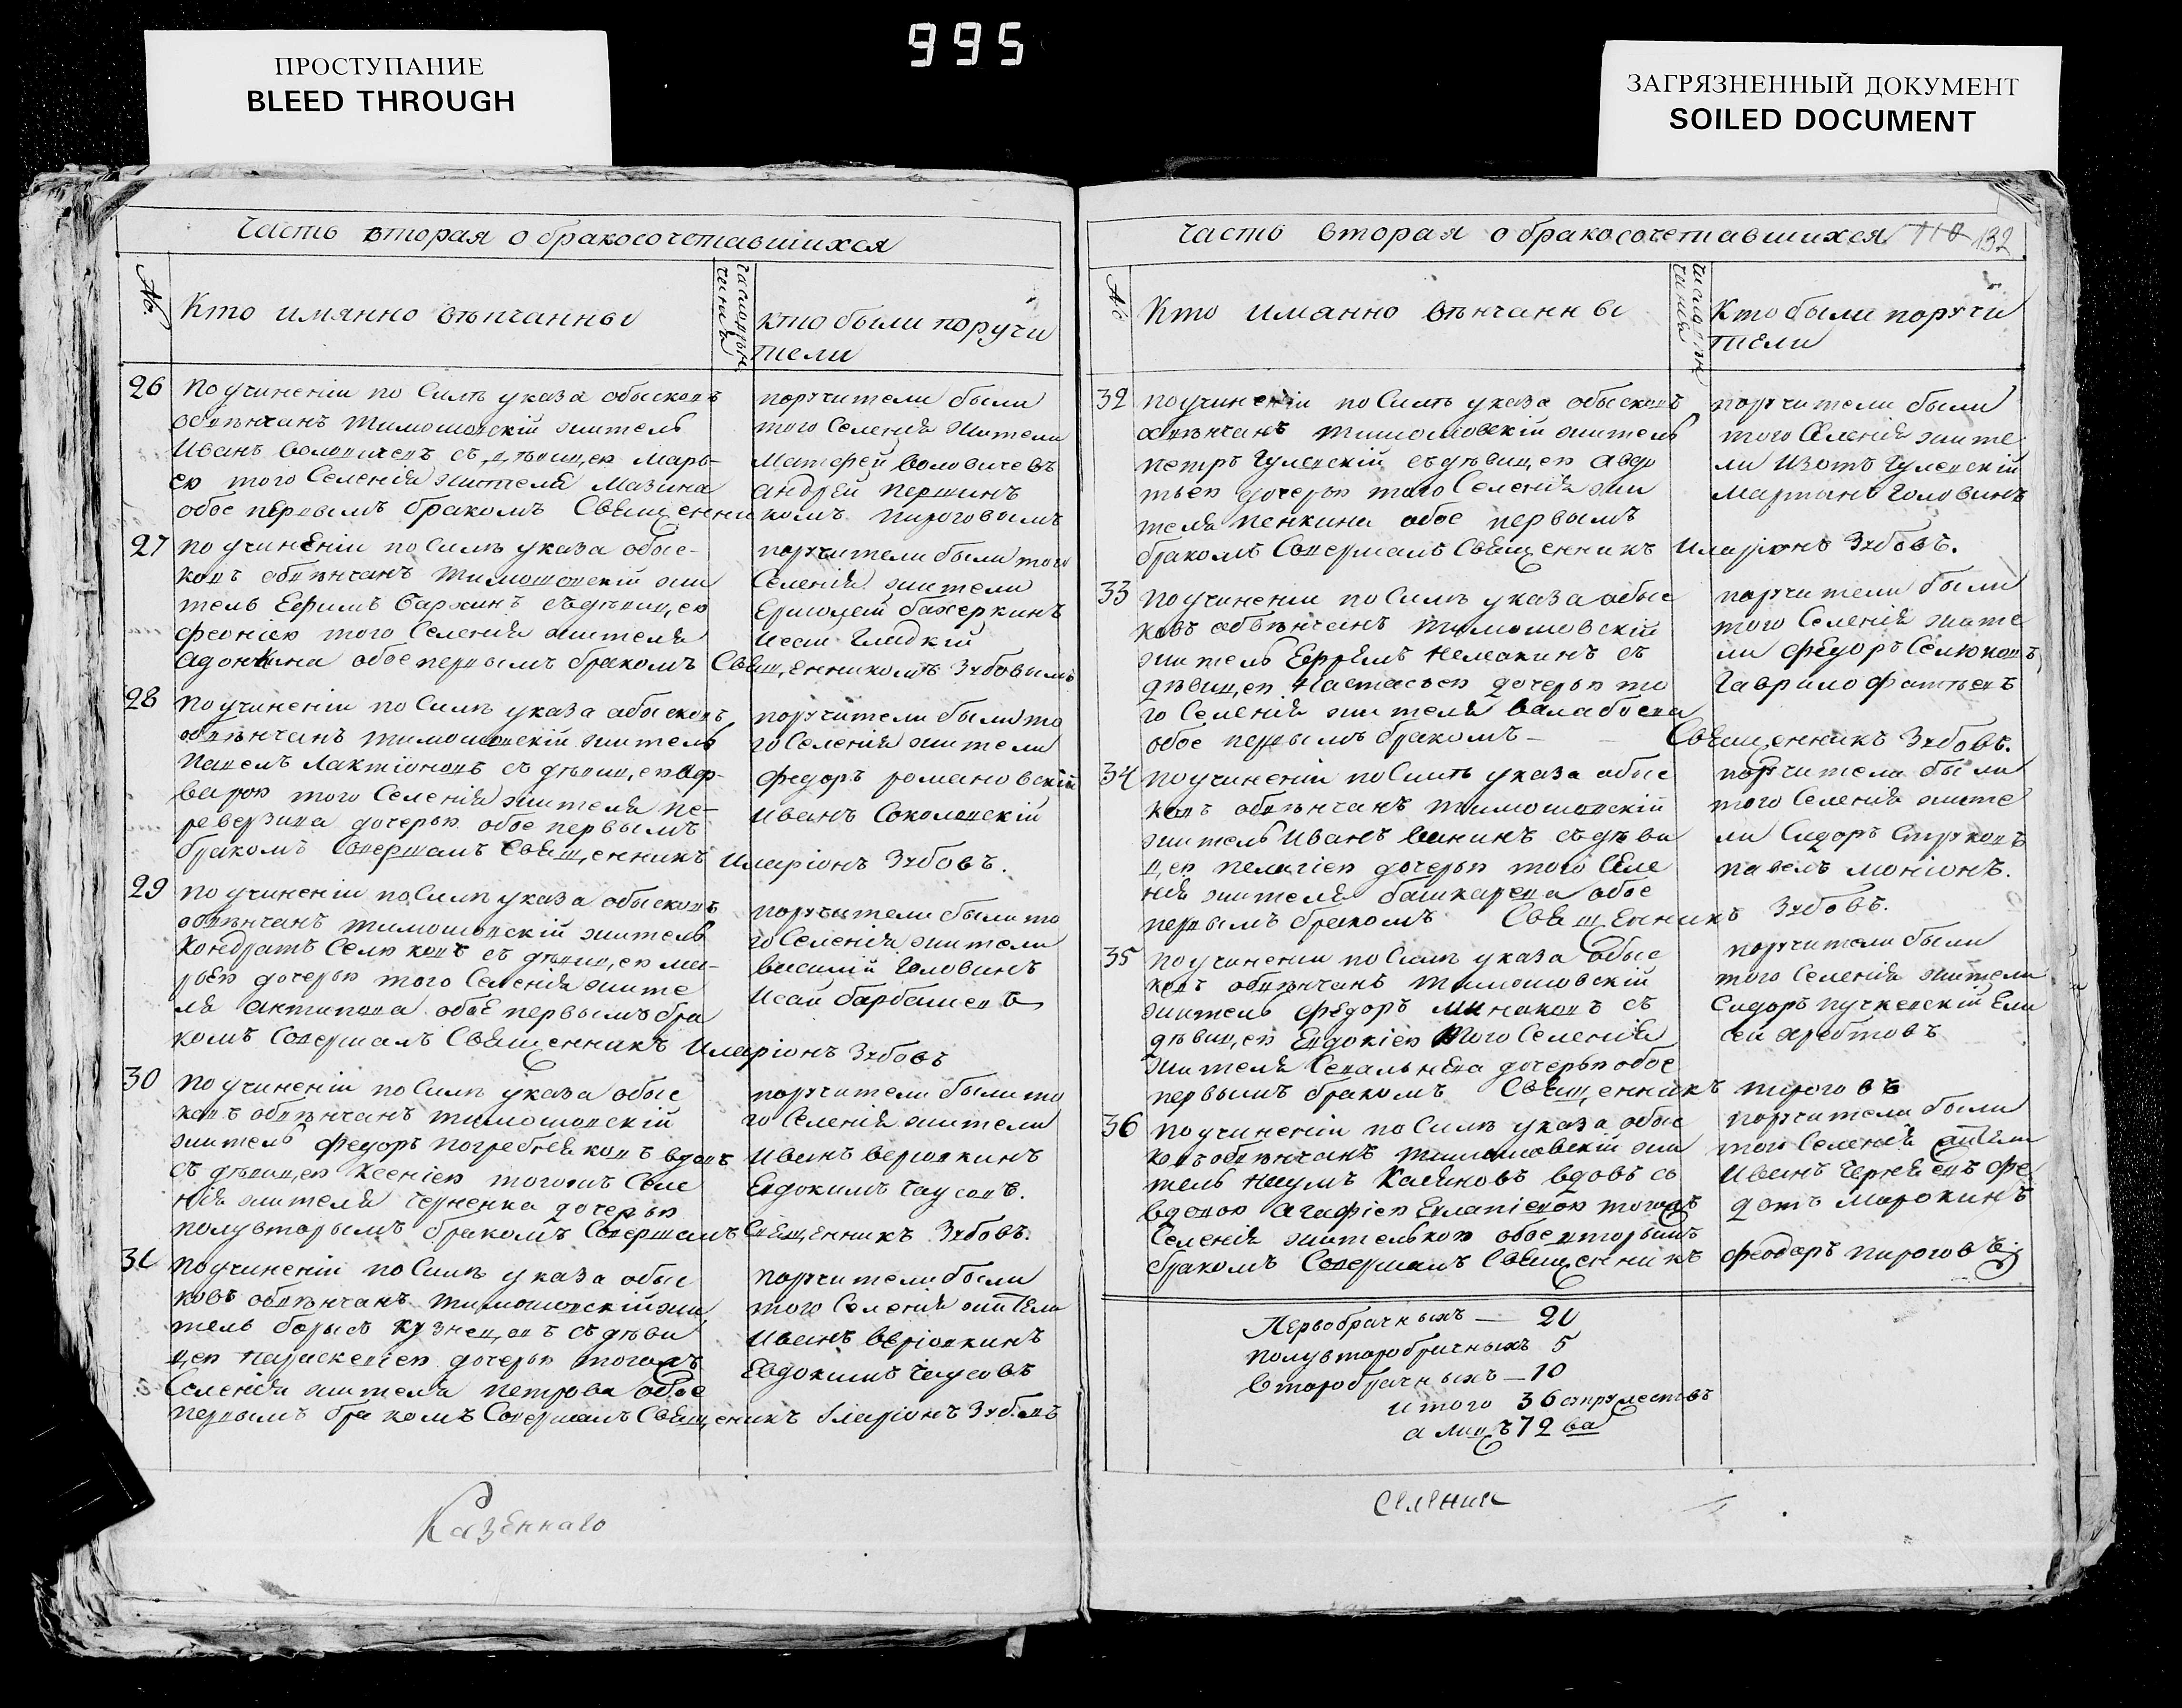 995
ПРОСТУПАНИЕ
BLEED THROUGH
ЗАГРЯЗНЕННЫЙ ДОКУМЕНТ
SOILED DOCUMENT
Часть вторая о бракосочетавшихся
№
Кто имянно вѣнчанны
кто были поручи
тели
26
по учиненіи по Силѣ указа обысковъ
обвѣнчанъ тимошовскій житель
Иванъ воловичевъ съ дѣвицею Марь-
ею того Селенія жителя Мазина
обое первымъ бракомъ Священникомъ Пироговымъ
поручители были
того Селенія жители
Матфей воловичевъ
андрей першинъ
27
по учиненіи по Силѣ указа обыс-
ковъ обвѣнчанъ тимошовскій жи
тель Ефимъ съ дѣвицею
феоніею того Селенія жителя
обое первымъ бракомъ Священникомъ Зубовымъ
поручители были того
Селенія жители
Ермолай бажеркинъ
Исаи Гладкій
28
по учиненіи по Силѣ указа обысковъ
обвѣнчанъ тимошовскій житель
Павелъ Лактіоновъ съ дѣвицею
варою того Селенія жителя пе-
реверзина дочерью обое первымъ
бракомъ Совершалъ Священникъ Иларіонъ Зубовъ.
поручители были то
го Селенія жители
федоръ романовскій
Иванъ Соколовскій
29
по учиненіи по Силѣ указа обысковъ
обвѣнчанъ тимошовскій житель
Кондратъ Селюковъ съ дѣвицею ма-
рьею дочерью того Селенія жите
ля антипова обое первымъ бра
комъ Совершалъ Священникъ Иларіонъ Зубовъ
поручители были то
го Селенія жители
василій Головинъ
Исаи барбашевъ
30
по учиненіи по Силѣ указа обыс
ковъ обвѣнчанъ тимошовскій
житель федоръ погребняковъ вдовъ
съ дѣвицею Ксеніею тогожъ Селе
нія жителя черненка дочерью
полувторымъ бракомъ Совершалъ Священникъ Зубовъ.
поручители были то
го Селенія жители
Иванъ веріовкинъ
Евдокимъ Чаусовъ.
31
по учиненіи по Силѣ указа обыс
ковъ обвѣнчанъ тимошовскій жи
тель борысъ кузнецовъ съ дѣви
цею параскевіею дочерью тогожъ
Селенія жителя петрова обое
первымъ бракомъ Совершалъ Священникъ Іларіонъ Зубовъ
поручители были
того Селенія жители
Иванъ веріовкинъ
Евдокимъ Чаусовъ
Казеннаго
часть вторая о бракосочетавшихся 110 132
№
Кто имянно вѣнчанны
Кто были поручи
тели
32
по учиненіи по Силѣ указа обысковъ
обвѣнчанъ тимошовскій житель
петръ Гулевскій съ дѣвицею авдо
тьею дочерью того Селенія жи
теля пенкина обое первымъ
бракомъ Совершалъ Священникъ Иларіонъ Зубовъ.
поручители были
того Селенія жите
ли Изотъ Гулевскій
Мартынъ Головинъ
33
по учиненіи по Силѣ указа обыс
ковъ обвѣнчанъ тимошовскій
житель Ефремъ съ
дѣвицею Настасьею дочерью то
го Селенія жителя балабоева
обое первымъ бракомъ - Священникъ Зубовъ.
поручители были
того Селенія жите
ли федоръ Селюковъ
Гаврило фатѣевъ
34
по учиненіи по Силѣ указа обыс
ковъ обвѣнчанъ тимошовскій
житель Иванъ ванинъ съ дѣви
цею пелагіею дочерью того Селе
нія жителя башкарева обое
первымъ бракомъ Священникъ Зубовъ.
поручители были
того Селенія жите
ли Сидоръ Струковъ
павелъ моніонъ.
35
по учиненіи по Силѣ указа обыс
ковъ обвѣнчанъ тимошовскій
житель федоръ минаковъ съ
дѣвицею Евдокіею того Селенія
жителя дочерью обое
первымъ бракомъ Священникъ пироговъ
поручители были
того Селенія жители
Сидоръ пучковскій Ели
сей
36
по учиненіи по Силѣ указа обыс
ковъ обвѣнчанъ тимошовскій жи
тель Наумъ вдовъ со
вдовою агафіею тогожъ
Селенія жителькою обое вторымъ
бракомъ Совершалъ Священникъ феодоръ пироговъ
поручители были
того Селенія жители
Иванъ Черняевъ фе
дотъ Марокинъ
Первобрачныхъ — 21
полувторобрачныхъ 5
Второбрачныхъ — 10
итого 36 супружествъ
а лицъ 72 ва
Селения